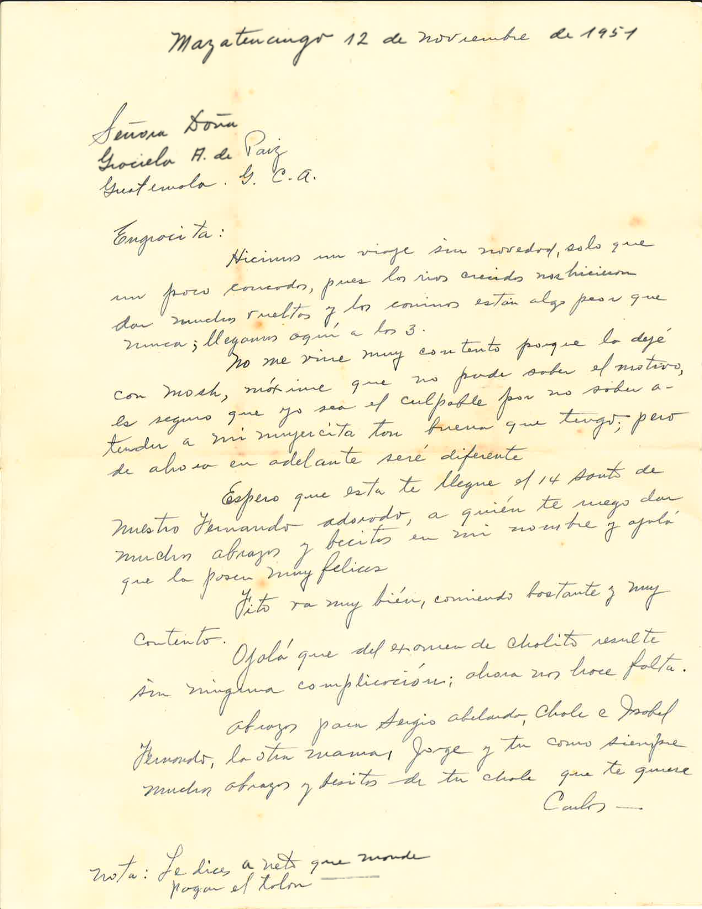 Mazatenango 12 de noviembre de 1951
Señora Doña
Graciela A. de Paiz
Guatemala. G. C. A.
Engracita:
Hicimos un viaje sin novedad, solo que
un poco cansados, pues los rios crecidos nos hicieron
dar muchas vueltas y los caminos están algo peor que
nunca; llegamos aquí a las 3.
No me vine muy contento porque la dejé
con mosh, máxime que no pude saber el motivo,
es seguro que yo sea el culpable por no saber a-
tender a mi mujercita tan buena que tengo; pero
de ahora en adelante seré diferente
Espero que esta te llegue el 14 santo de
nuestro Fernando adorado, a quién te ruego dar
muchos abrazos y besitos en mi nombre y ojalá
que la pasen muy felices
Fito va muy bién, comiendo bastante y muy
contento.
Ojalá que del examen de Cholito resulte
sin ninguna complicación; ahora nos hace falta.
Abrazos para Sergio Abelardo, Chole e Isabel
Fernando, la otra mama, Jorge y tu como siempre
muchos abrazos y besitos de tu chole que te quiere
Carlos —
nota: Le dices a neto que mande
pagar el talon